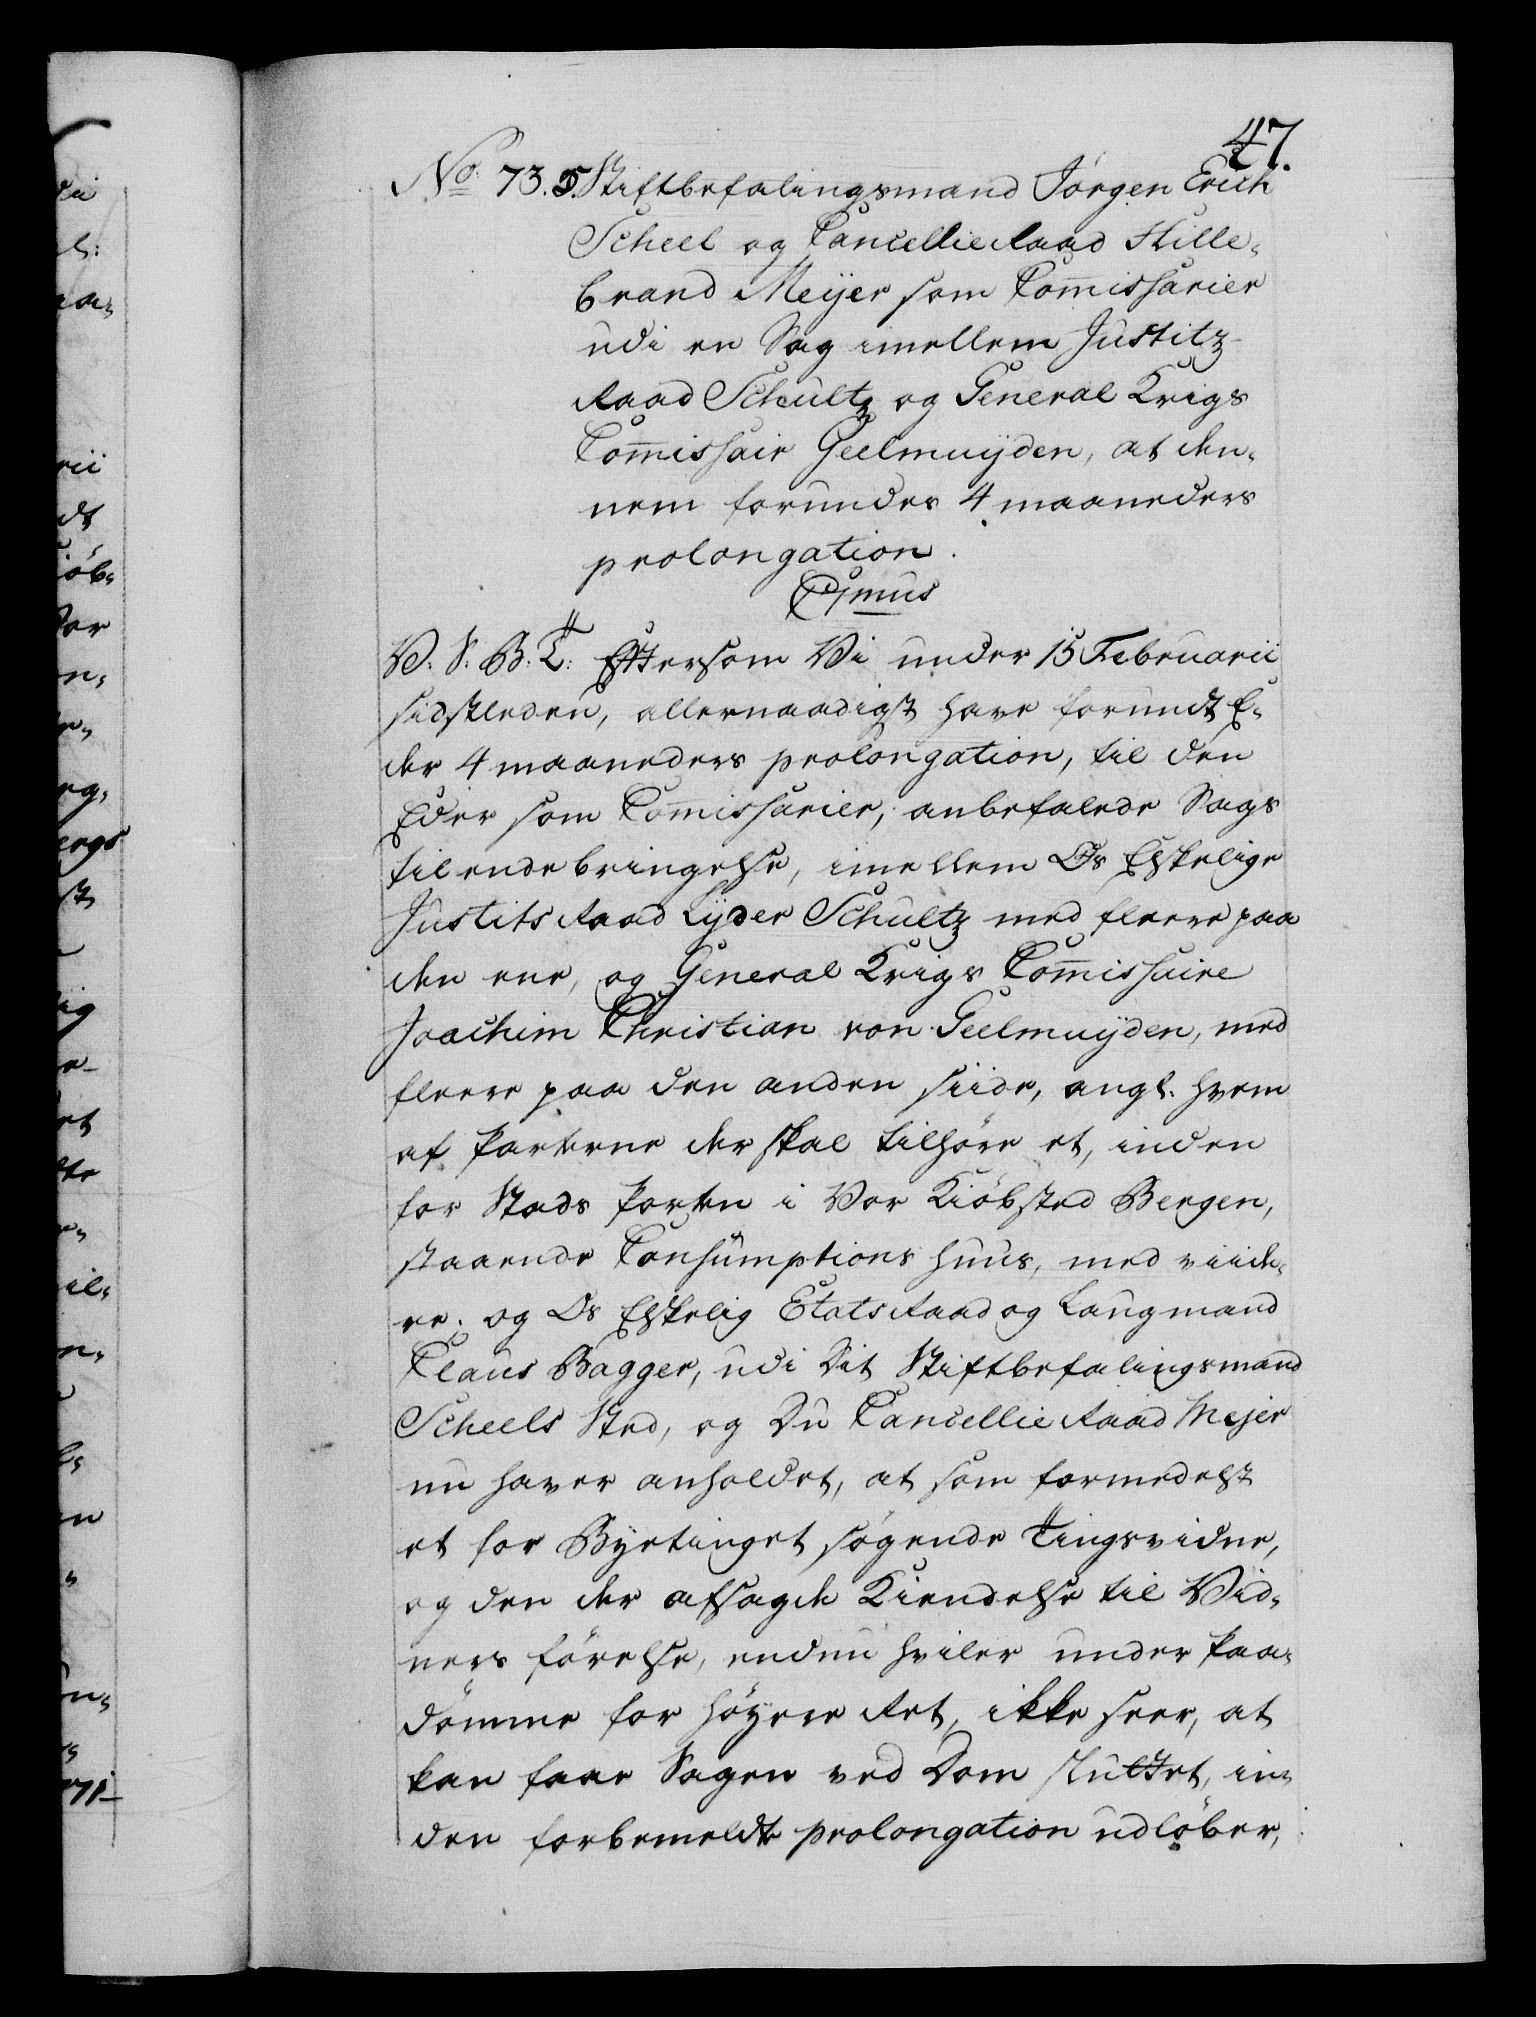 47.
No. 73. Stiftbefalingsmand Jörgen Erich
Scheel og Cancellie Raad Hille-
brand Meijer som Commissarier
udi en Sag imellem Justitz
Raad Schultz og General Krigs
Commissair Geelmuijden, at den-
nem forundes 4 maaneders
prolongation.
C7mus
V: S: B: T: Eftersom Vi under 15 Februarii
sidstleden, allernaadigst have forundt E-
der 4 maaneders prolongation, til den
Eder som Commissarier, anbefalede Sags
tilendebringelse, imellem Os Elskelige
Justits Raad Lyder Schultz med fleere paa
den ene, og General Krigs Commissaire
Joachim Christian von Geelmuijden, med
fleere paa den anden siide, angl. hvem
af Parterne der skal tilhöre et, inden
for Stads Porten i Vor Kiöbsted Bergen,
staaende Consumptions Huus, med viide-
re; og Os Elskelig Etats Raad og Laugmand
Claus Bagger, udi Dit Stiftbefalingsmand
Scheels Sted, og Du Cancellie Raad Mejer
nu haver anholdet, at som formedelst
et for Byetinget søgende Tingsvidne,
og den der afsagde Kiendelse til Vid-
ners förelse, endnu hviler under Paa-
dömme for höyere Ret, ikke seer, at
kan faae Sagen ved Dom sluttet, in-
den forbemeldte prolongation udlöber,